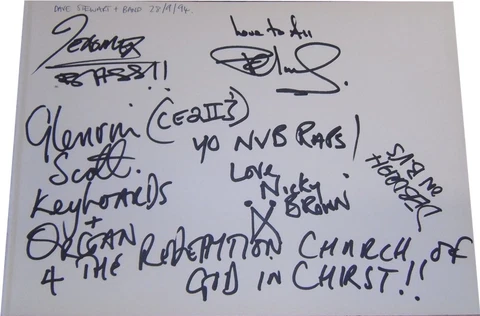 DAVE STEWART + BAND 28/9/94.
BASS!!
Love to All
Glenroy (CEQII'S)
Scott.
KEYBOARDS
+
ORGAN
4 THE REDEMTION CHURCH of
GOD IN CHIRST!!
YO NVB RAPS!
LOVE
Nicky
BROWN
ON B/S